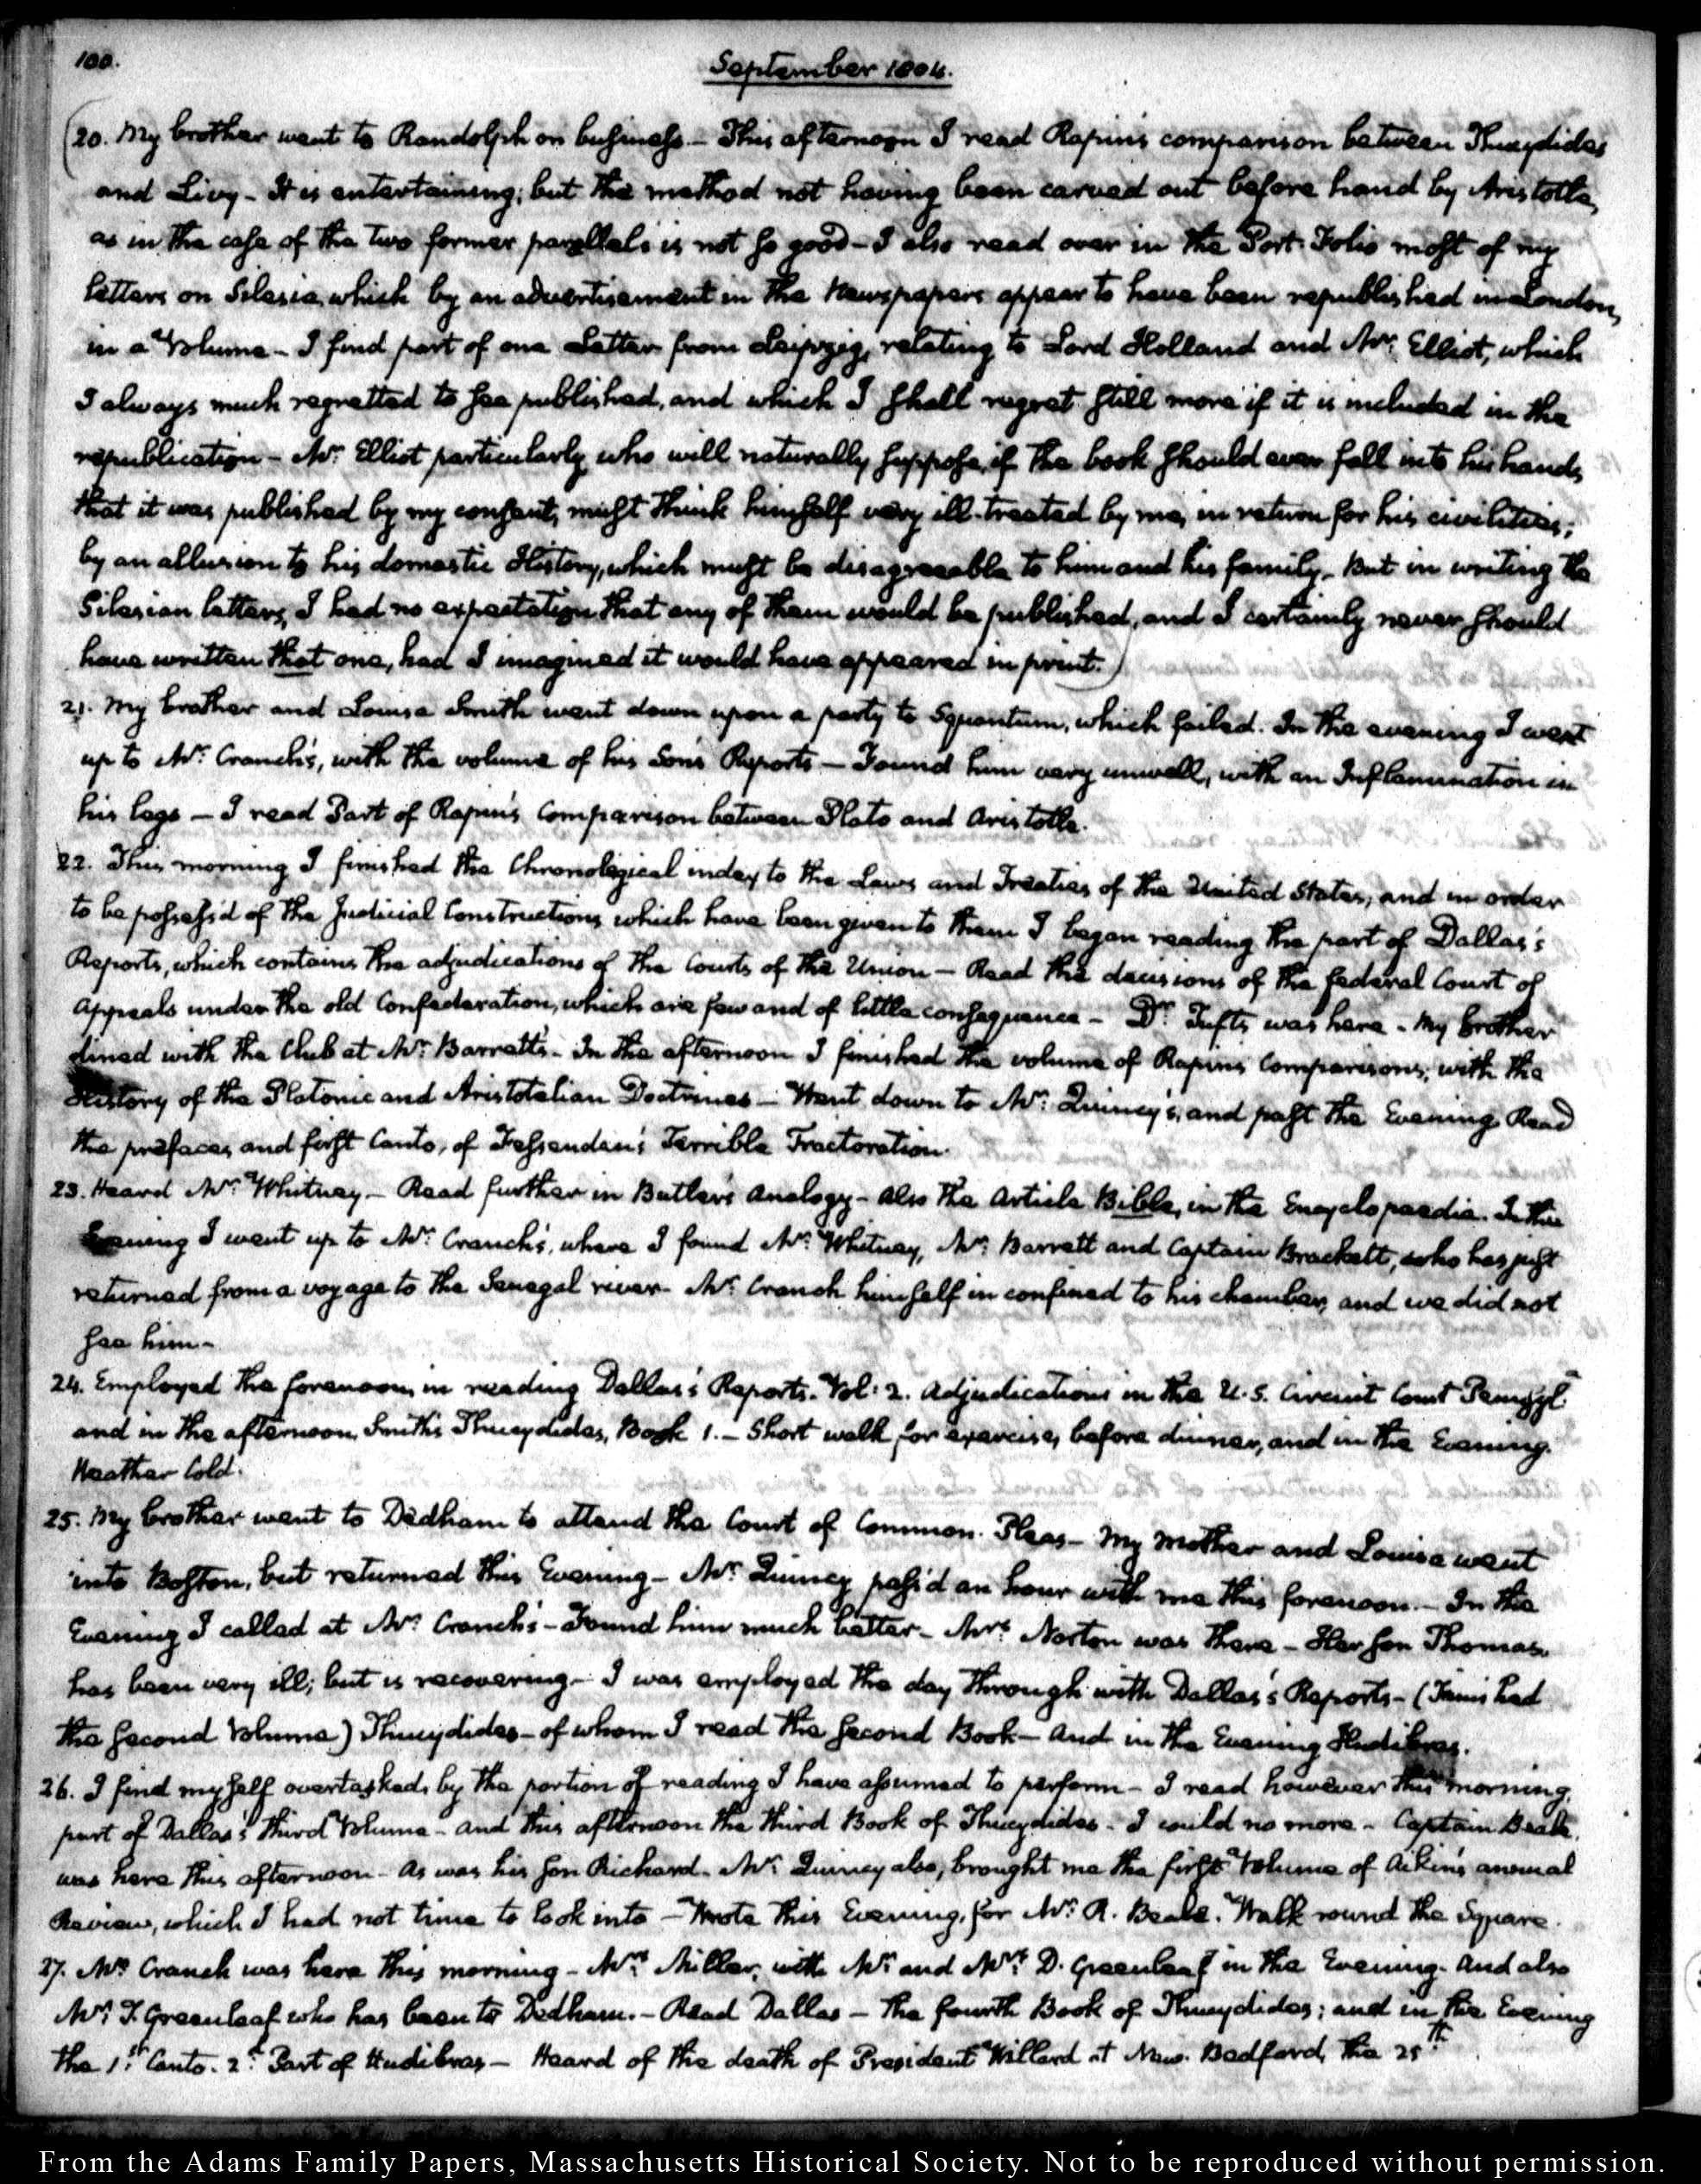 100.
September 1804.
(20. My brother went to Randolph on business. – This afternoon I read Rapin's comparison between Thucydides
and Livy – It is entertaining; but the method not having been carved out before hand by Aristotle,
as in the case of the two former parallels is not so good – I also read over in the Port-Folio most of my
letters on Silesia, which by an advertisement in the Newspapers appear to have been republished in London,
in a Volume – I find part of one Letter from Leipzig, relating to Lord Holland and Mr: Elliot, which
I always much regretted to see published, and which I shall regret still more if it is included in the
republication – Mr: Elliot particularly who will naturally suppose, if the book should ever fall into his hands,
that it was published by my consent, must think himself very ill-treated by me, in return for his civilities;
by an allusion to his domestic History, which must be disagreeable to him and his family – But in writing the
Silesian letters, I had no expectation that any of them would be published, and I certainly never should
have written that one, had I imagined it would have appeared in print.)
21. My brother and Louisa Smith went down upon a party to Squantum, which failed. In the evening I went
up to Mr: Cranch's, with the volume of his Son's Reports – Found him very unwell, with an Inflammation in
his legs – I read Part of Rapin's Comparison between Plato and Aristotle.
22. This morning I finished the Chronological index to the Laws and Treaties of the United States, and in order
to be possess'd of the Judicial Constructions which have been given to them I began reading the part of Dallas's
Reports, which contains the adjudications of the Courts of the Union – Read the decisions of the federal Court of
Appeals under the old Confederation, which are few and of little consequence – Dr: Tufts was here – My brother
dined with the Club at Mr: Barrett's – In the afternoon I finished the volume of Rapin's Comparisons, with the
History of the Platonic and Aristotelian Doctrines – Went down to Mr: Quincy's, and past the Evening. Read
the prefaces and first Canto, of Fessenden's Terrible Tractoration.
23. Heard Mr: Whitney – Read further in Butler's Analogy – Also the Article Bible, in the Encyclopaedia. In the
Evening I went up to Mr: Cranch's, where I found Mr: Whitney, Mr: Barrett and Captain Brackett, who has just
returned from a voyage to the Senegal river – Mr: Cranch himself in confined to his chamber, and we did not
see him –
24. Employed the forenoon, in reading Dallas's Reports. Vol: 2. Adjudications in the U.S. Circuit Court Pennsyl:
and in the afternoon, Smith's Thucydides, Book 1. – Short walk for exercise, before dinner, and in the Evening.
Weather Cold.
25. My brother went to Dedham to attend the Court of Common-Pleas – My Mother and Louisa went
into Boston, but returned this Evening – Mr: Quincy pass'd an hour with me this forenoon. – In the
Evening I called at Mr: Cranch's – Found him much better – Mrs: Norton was there – Her son Thomas
has been very ill; but is recovering – I was employed the day through with Dallas's Reports – (Finished
the second Volume) Thucydides – of whom I read the second Book – And in the Evening Hudibras.
26. I find myself overtasked, by the portion of reading I have assumed to perform – I read however this morning,
part of Dallas's third Volume – and this afternoon the third Book of Thucydides – I could no more – Captain Beale
was here this afternoon – As was his son Richard. Mr: Quincy also, brought me the first Volume of Aikin's annual
Review, which I had not time to look into – Wrote this Evening, for Mr: R. Beale. Walk round the Square.
27. Mrs Cranch was here this morning – Mrs: Miller, with Mr: and Mrs: D. Greenleaf in the Evening – And also
Mr: T. Greenleaf who has been to Dedham. – Read Dallas – The fourth Book of Thucydides; and in the Evening
the 1st: Canto. 2d: Part of Hudibras – Heard of the death of President Willard at New-Bedford, the 25th.
From the Adams Family Papers, Massachusetts Historical Society. Not to be reproduced without permission.